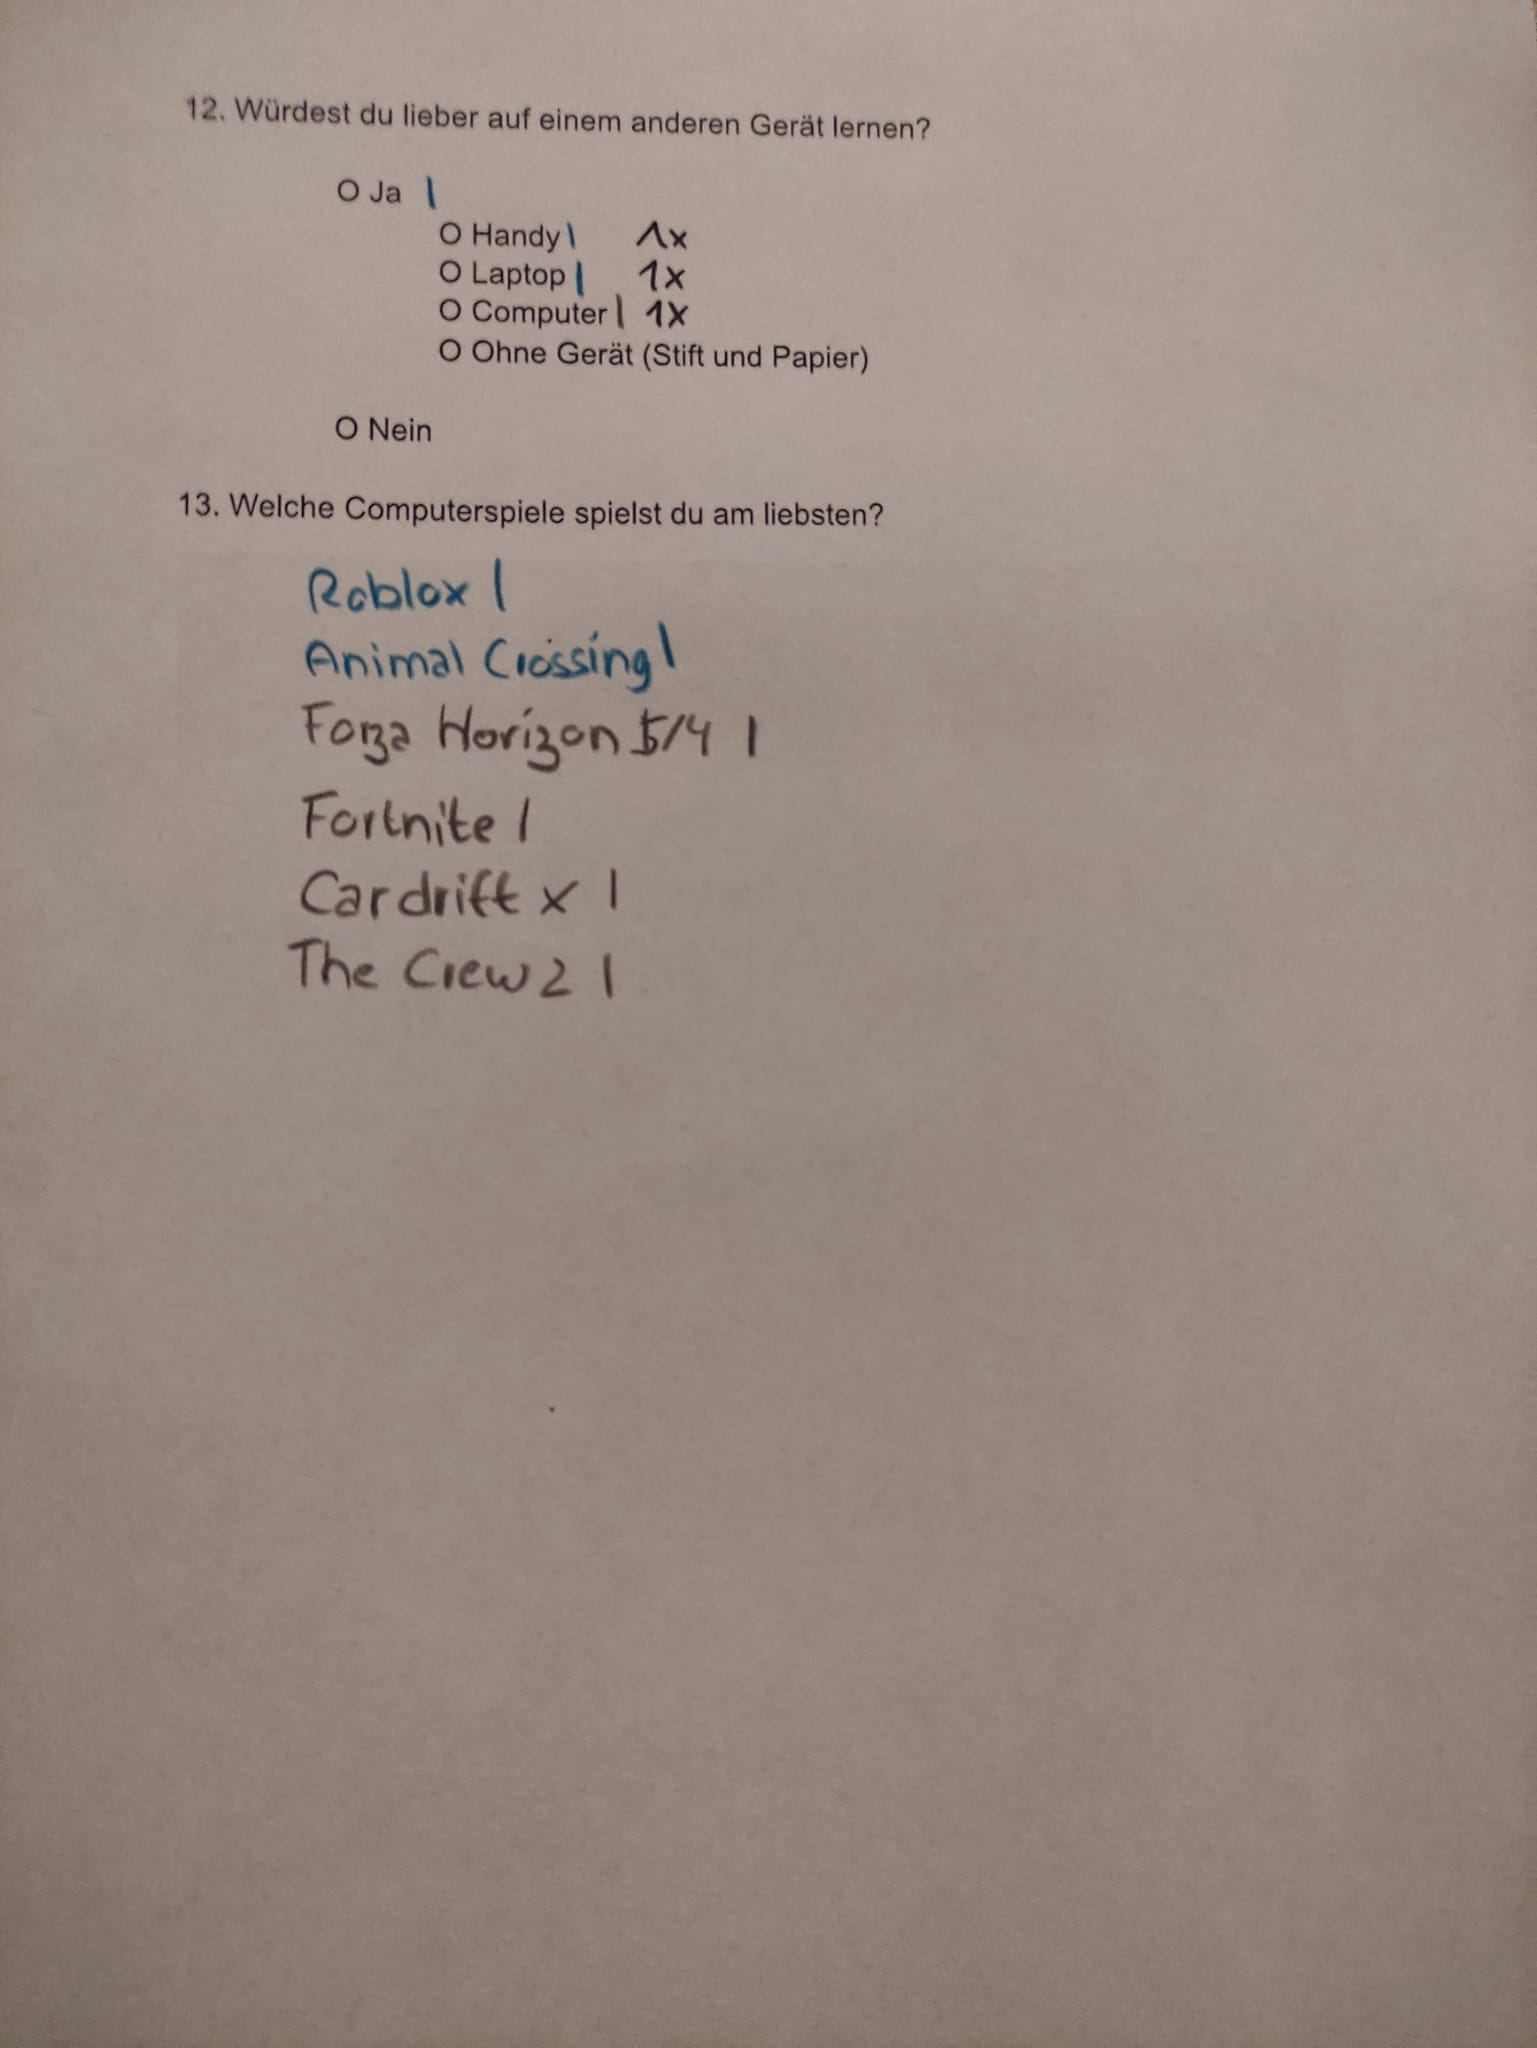 12. Würdest du lieber auf einem anderen Gerät lernen?
O Ja |
O Handy | 1x
O Laptop | 1x
O Computer | 1x
O Ohne Gerät (Stift und Papier)
O Nein
13. Welche Computerspiele spielst du am liebsten?
Roblox |
Animal Crossing |
Forza Horizon 5/4 |
Fortnite |
Car drift x |
The Crew 2 |